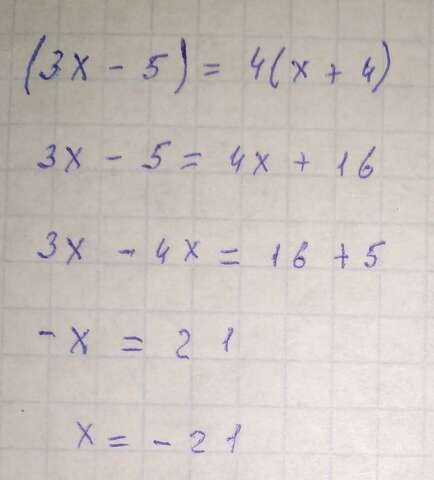 (3x - 5) = 4(x + 4)
3x - 5 = 4x + 16
3x - 4x = 16 + 5
-x = 21
x = -21